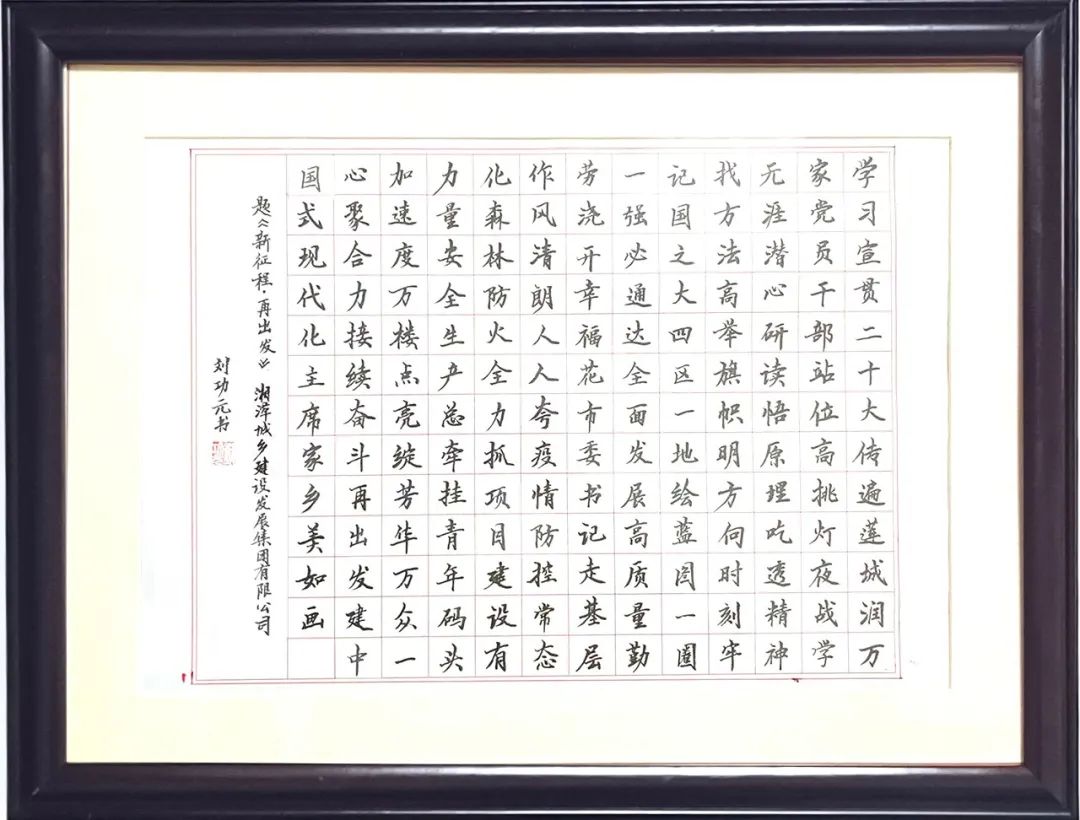 学习宣贯二十大传遍莲城润万
家党员干部站位高挑灯夜战学
无涯潜心研读悟原理吃透精神
找方法高举旗帜明方向时刻牢
记国之大四区一地绘蓝图一圈
一强必通达全面发展高质量勤
劳浇开幸福花市委书记走基层
作风清朗人人夸疫情防控常态
化森林防火全力抓项目建设有
力量安全生产总牵挂青年码头
加速度万楼点亮绽芳华万众一
心聚合力接续奋斗再出发建中
国式现代化主席家乡美如画
题《新征程·再出发》 湘潭城乡建设发展集团有限公司
刘功元书